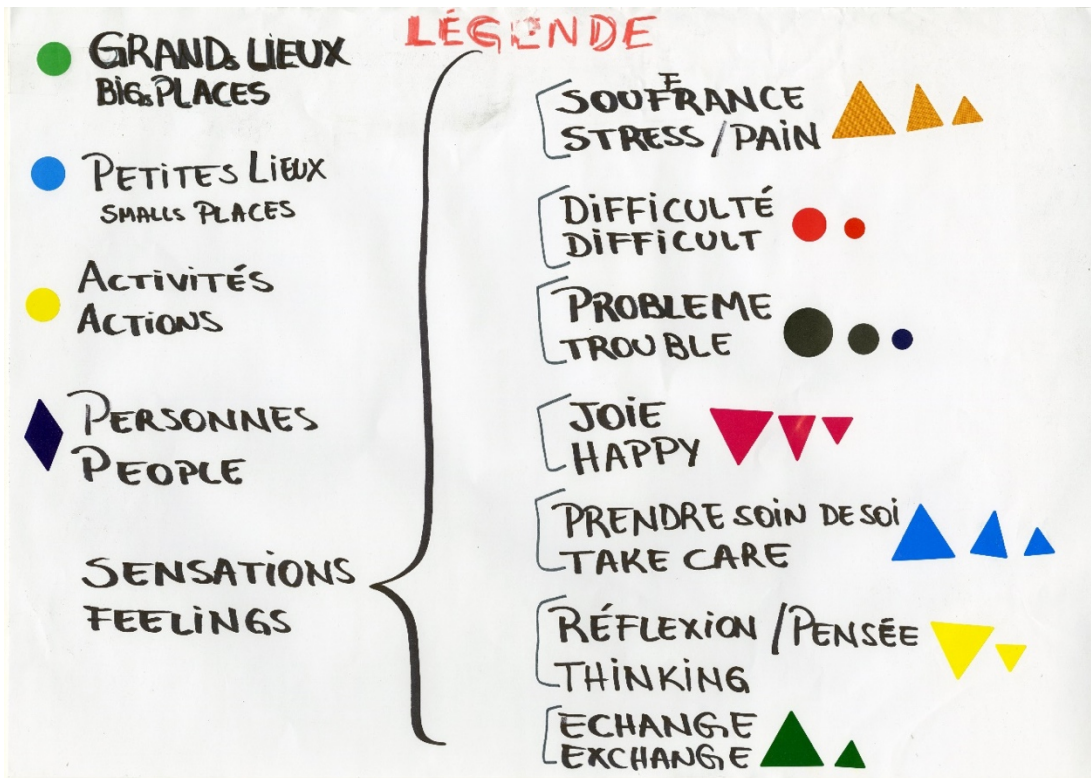 LÉGENDE
GRANDs LIEUX
BIGs PLACES
PETITES LIEUX
SMALLs PLACES
ACTIVITÉS
ACTIONS
PERSONNES
PEOPLE
SENSATIONS
FEELINGS
SOUFFRANCE
STRESS / PAIN
DIFFICULTÉ
DIFFICULT
PROBLEME
TROUBLE
JOIE
HAPPY
PRENDRE SOIN DE SOI
TAKE CARE
RÉFLEXION / PENSÉE
THINKING
ECHANGE
EXCHANGE